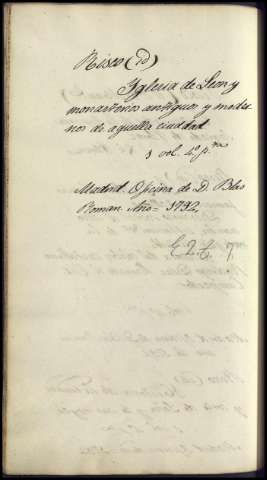 Risco (id)
Yglesia de Leon y
monasterios antiguos y moder
nos de aquella ciudad
1 vol. 4º p.ª
Madrid. Oficina de D. Blas
Roman. Año= 1792.